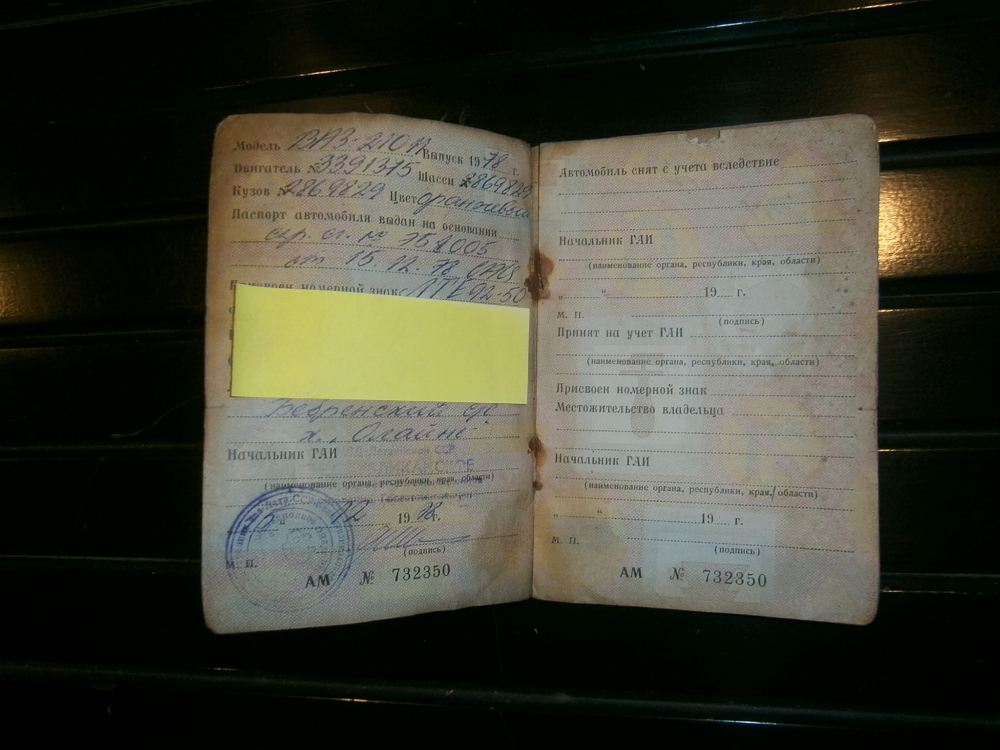 Модель ВАЗ-21011 Выпуск 1978 г.
Двигатель № 3391375 Шасси № 2869829
Кузов № 2869829 Цвет оранжевый
Паспорт автомобиля выдан на основании
от 15.12.78
Присвоен номерной знак 92-50
х. „Олайне“
Начальник ГАИ
(наименование органа, республики, края, области)
12 1978 г.
(подпись)
М. П.
АМ № 732350
Автомобиль снят с учета вследствие
Начальник ГАИ
(наименование органа, республики, края, области)
„ “ 19 г.
М. П.
(подпись)
Принят на учет ГАИ
(наименование органа, республики, края, области)
Присвоен номерной знак
Местожительство владельца
Начальник ГАИ
(наименование органа, республики, края, области)
„ “ 19 г.
М. П.
(подпись)
АМ № 732350